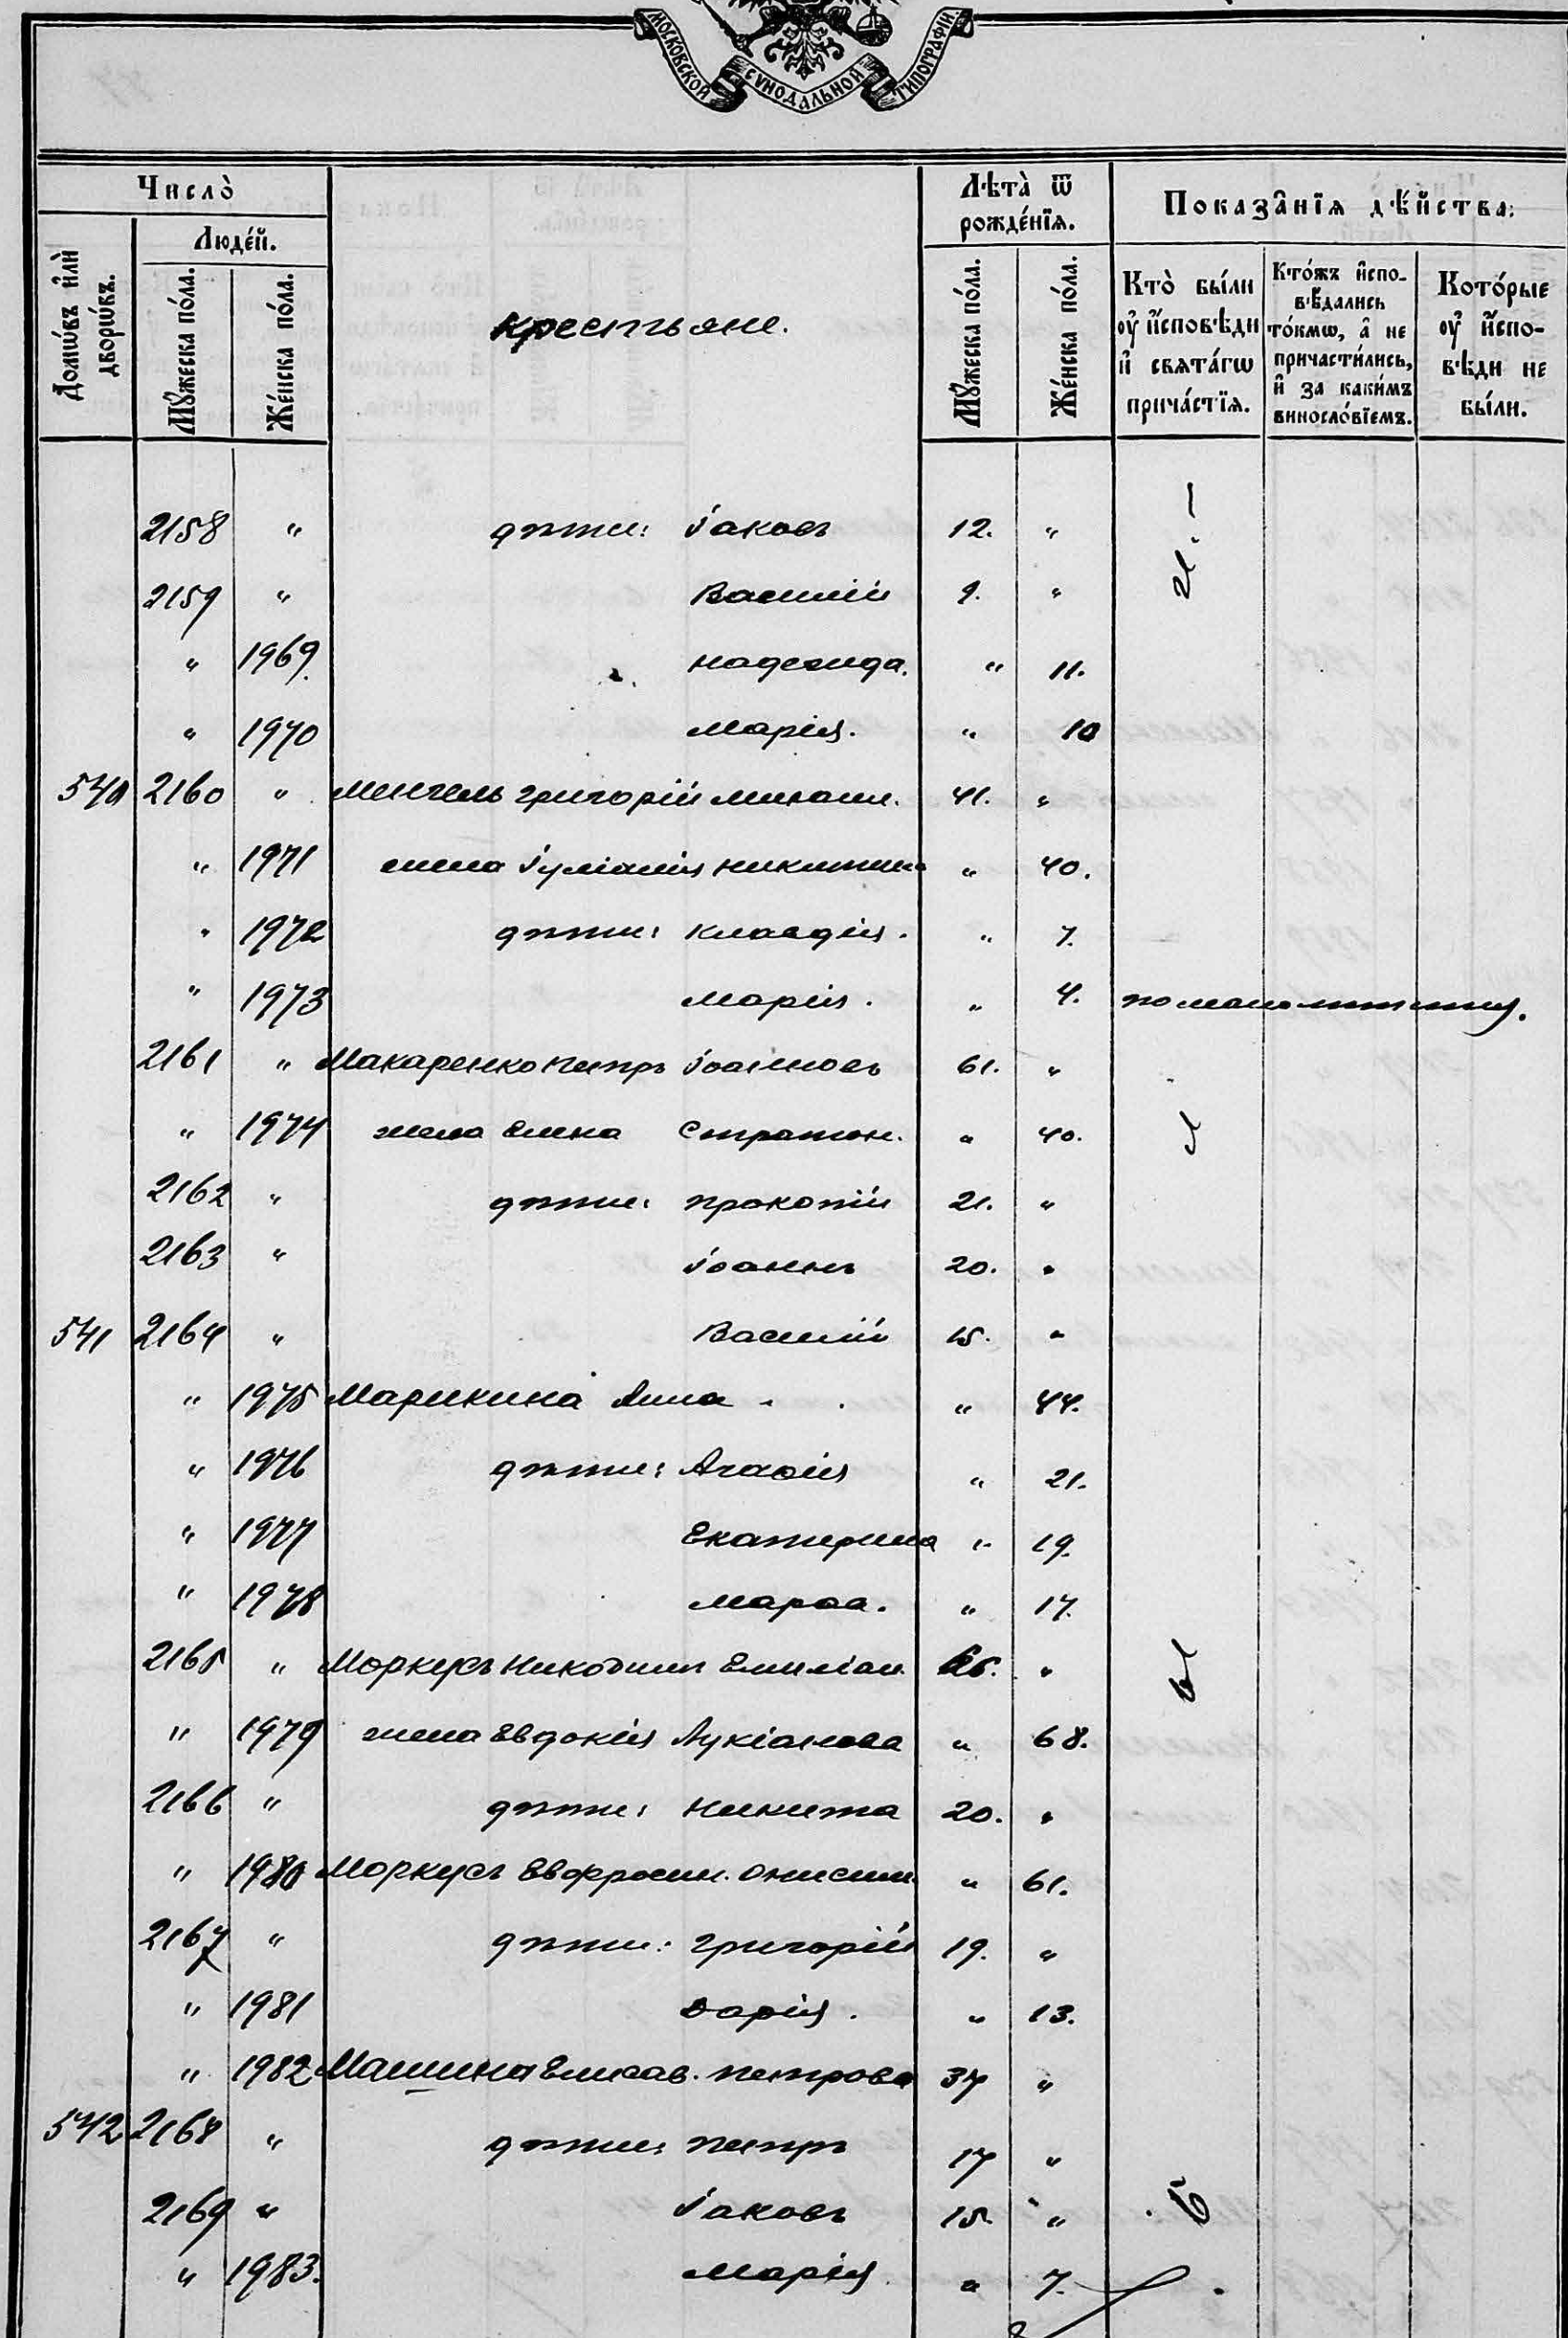 МОСКОВСКОЙ СѴНОДАЛЬНОЙ ТИПОГРАФІИ.
Число̀
Людéй.
Домѡ́въ и҆лѝ дворѡ́въ.
Мꙋ́жеска по́ла.
Же́нска по́ла.
крестьяне.
Лѣта̀ ѿ рожде́нїѧ.
Мꙋ́жеска по́ла.
Же́нска по́ла.
Показа̂нїѧ дѣ́йства:
Кто̀ бы́ли оу҆ и҆́сповѣди и҆ свѧта́гѡ прича́стїѧ.
Кто́жъ и҆спо-вѣдались то́кмѡ, а҆ не причасти́лись, и҆ за каки́мъ винослóвїемъ.
Кото́рые оу҆ и҆́спо-вѣди не бы́ли.
2158 " дѣти: Іаковъ 12. "
2159 " Василій 9. "
" 1969. Надежда. " 11.
" 1970 Марія. " 10
540 2160 " Менгель Григорій Михаил. 41. "
" 1971 жена Іуліанія Никитина " 40.
" 1972 дѣти: Клавдія. " 7.
" 1973 Марія. " 4. по малолѣтству.
2161 " Макаренко Петръ Іоанновъ 61. "
" 1974 жена Елена Стратон. " 40.
2162 " дѣти: Прокопій 21. "
2163 " Іоаннъ 20. "
541 2164 " Василій 15. "
" 1975 Марикина Анна " 44.
" 1976 дѣти: Агаѳія " 21.
" 1977 Екатерина " 19.
" 1978 Марѳа. " 17.
2165 " Моркусъ Никодим Емиліан. "
" 1979 жена Евдокія Лукіанова " 68.
2166 " дѣти: Никита 20. "
" 1980 Моркусъ Евфросин. Онисим. " 61.
2167 " дѣти: Григорій 19. "
" 1981 Дарія. " 13.
" 1982 Машина Елисав. Петрова 37 "
542 2168 " дѣти: Петръ 17 "
2169 " Іаковъ 15. "
" 1983. Марія " 7.